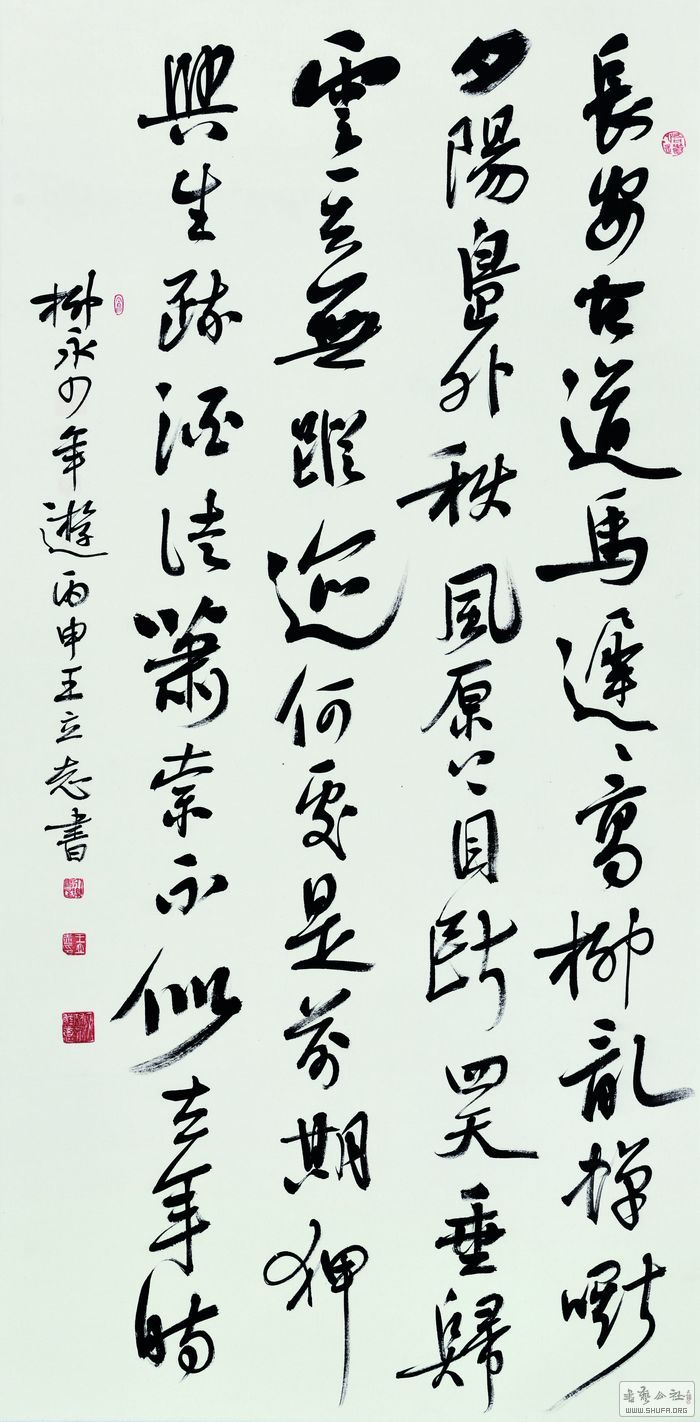 長安古道馬遲〻高柳亂蟬嘶
夕陽島外秋風原上目斷四天垂歸
雲一去無蹤迹何處是前期狎
興生疎酒徒蕭索不似去年時
柳永少年遊丙申王立志書
书艺公社
WWW.SHUFA.ORG